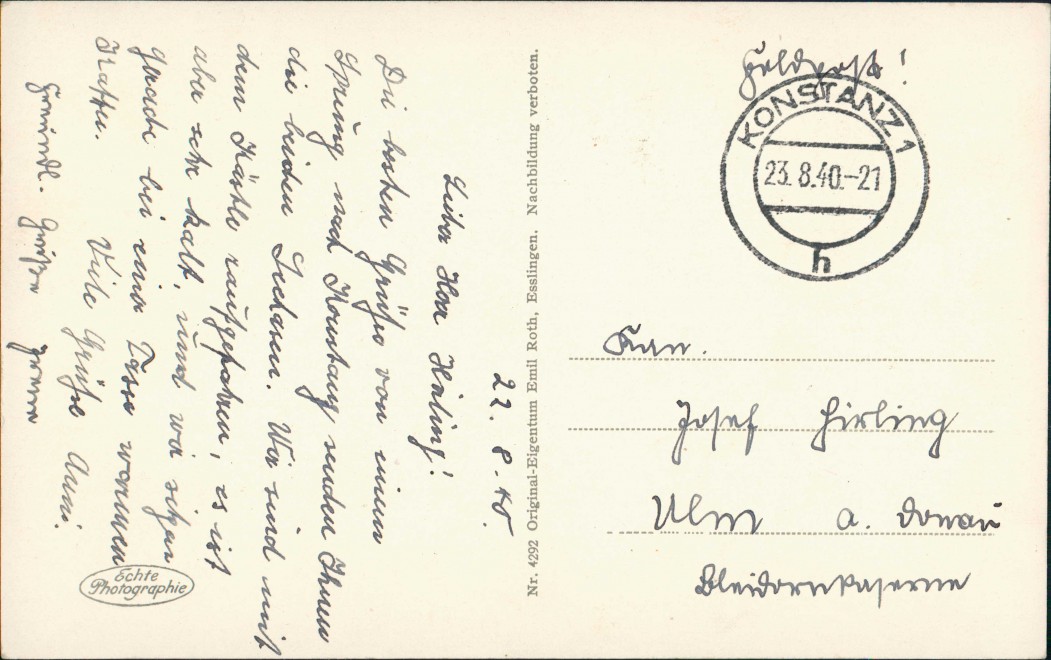 22. 8. 40.
Lieber Herr Hirling!
Die besten Grüße von einem
Sprung nach Konstanz senden Ihnen
die beiden Seehasen. Wir sind mit
dem Kästle raufgefahren, es ist
aber sehr kalt, und wir sitzen
gerade bei einer Tasse warmen
Kaffee. Viele Grüße Anni.
Freundl. Grüße
Echte
Photographie
Nr. 4292 Original-Eigentum Emil Roth, Esslingen. Nachbildung verboten.
Feldpost!
KONSTANZ 1
23.8.40.-21
h
Kan.
Josef Hirling
Ulm a. Donau
Bleidornkaserne